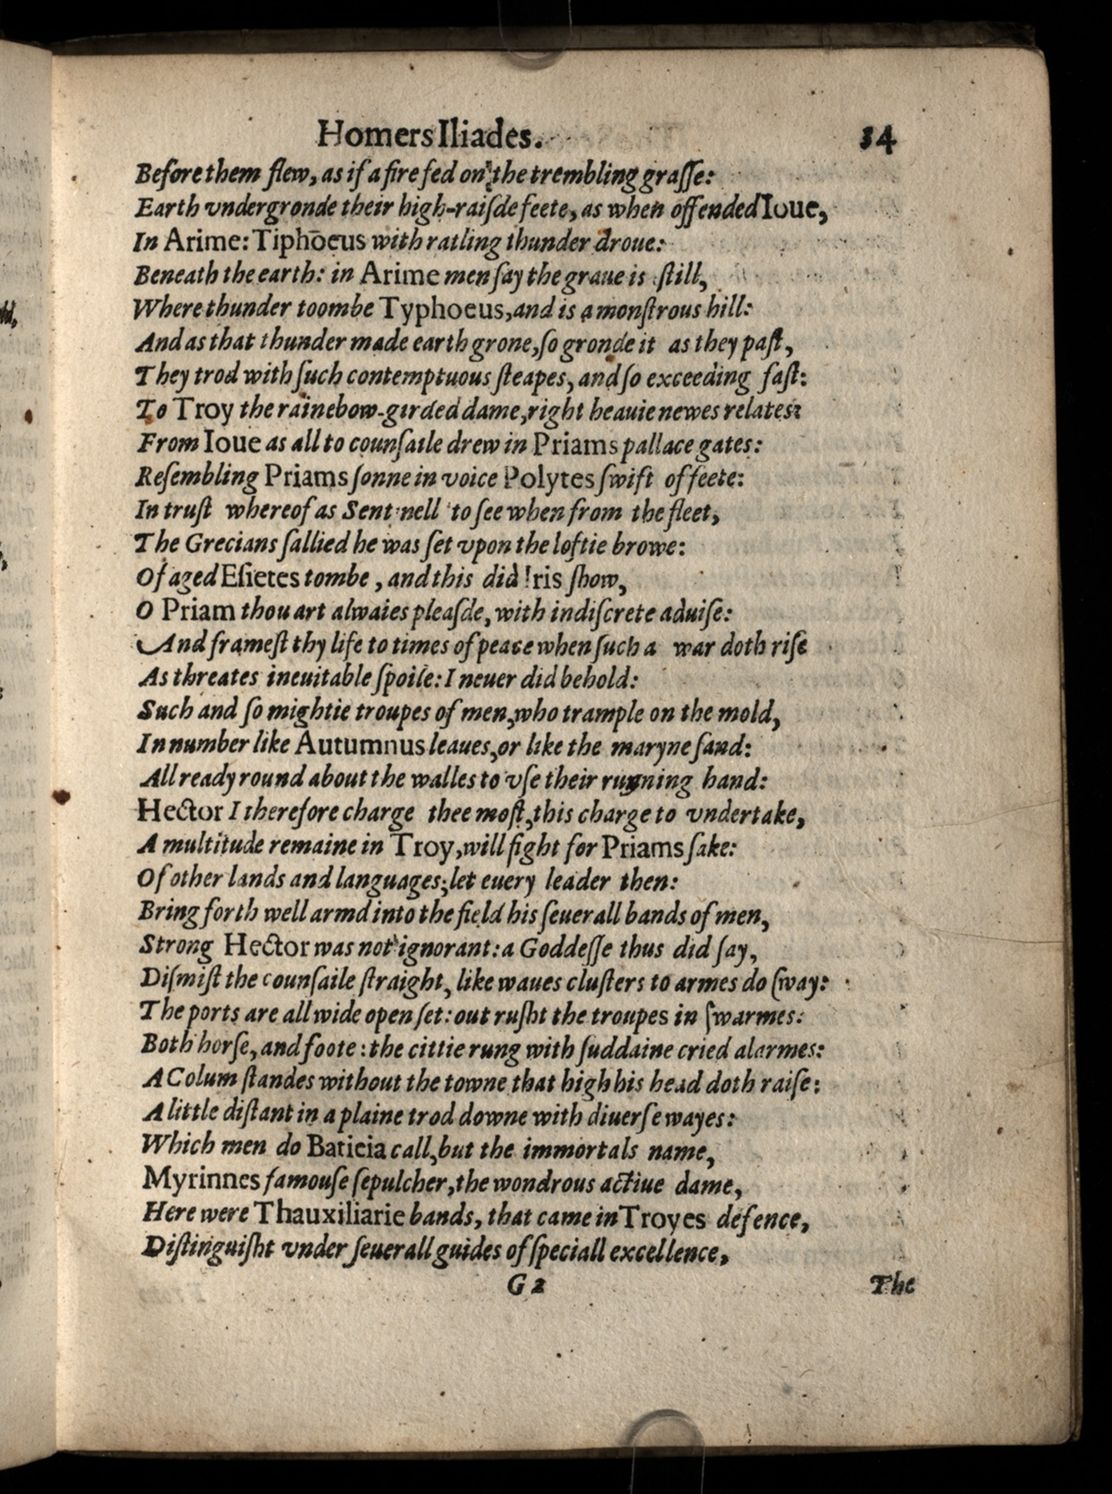 Homers Iliades. 34
Before them flew, as if a fire fed on the trembling graſſe:
Earth vndergronde their high-raiſde feete, as when offended Ioue,
In Arime: Tiphōeus with ratling thunder droue:
Beneath the earth: in Arime men ſay the graue is ſtill,
Where thunder toombe Typhoeus, and is a monſtrous hill:
And as that thunder made earth grone, ſo gronde it as they paſt,
They trod with ſuch contemptuous ſteapes, and ſo exceeding faſt:
To Troy the rainebow-girded dame, right heauie newes relates:
From Ioue as all to counſaile drew in Priams pallace gates:
Reſembling Priams ſonne in voice Polytes ſwift of feete:
In truſt whereof as Sentinell to ſee when from the fleet,
The Grecians ſallied he was ſet vpon the loftie browe:
Of aged Eſietes tombe, and this did Iris ſhow,
O Priam thou art alwaies pleaſde, with indiſcrete aduiſe:
And frameſt thy life to times of peace when ſuch a war doth riſe
As threates ineuitable ſpoile: I neuer did behold:
Such and ſo mightie troupes of men, who trample on the mold,
In number like Autumnus leaues, or like the maryne ſand:
All ready round about the walles to vſe their running hand:
Hector I therefore charge thee moſt, this charge to vndertake,
A multitude remaine in Troy, will fight for Priams ſake:
Of other lands and languages; let euery leader then:
Bring forth well armd into the field his ſeuerall bands of men,
Strong Hector was not ignorant: a Goddeſſe thus did ſay,
Diſmiſt the counſaile ſtraight, like waues cluſters to armes do ſway:
The ports are all wide open ſet: out ruſht the troupes in ſwarmes:
Both horſe, and foote: the cittie rung with ſuddaine cried alarmes:
A Colum ſtandes without the towne that high his head doth raiſe:
A little diſtant in a plaine trod downe with diuerſe wayes:
Which men do Baticia call, but the immortals name,
Myrinnes famouſe ſepulcher, the wondrous actiue dame,
Here were Thauxiliarie bands, that came in Troyes defence,
Diſtinguiſht vnder ſeuerall guides of ſpeciall excellence,
G 2 The